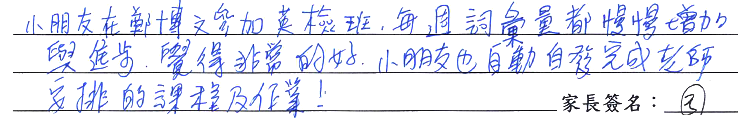 小朋友在鄭博文參加英檢班，每週詞彙量都慢慢增加
與進步，覺得非常的好。小朋友也自動自發完成老師
安排的課程及作業！
家長簽名：